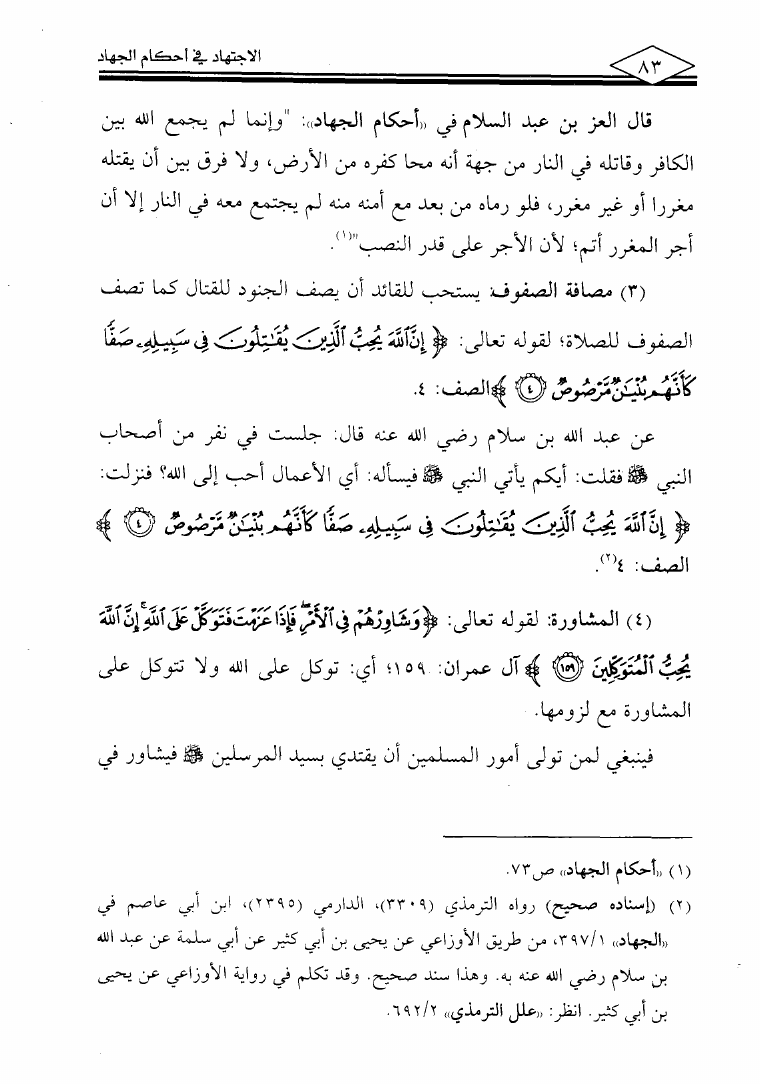 الاجتهاد في أحكام الجهاد
٨٣
قال العز بن عبد السلام في «أحكام الجهاد»: "وإنما لم يجمع الله بين
الكافر وقاتله في النار من جهة أنه محا كفره من الأرض، ولا فرق بين أن يقتله
مغررا أو غير مغرر، فلو رماه من بعد مع أمنه منه لم يجتمع معه في النار إلا أن
أجر المغرر أتم؛ لأن الأجر على قدر النصب"(١).
(٣) مصافة الصفوف: يستحب للقائد أن يصف الجنود للقتال كما تصف
الصفوف للصلاة؛ لقوله تعالى: ﴿ إِنَّ ٱللَّهَ يُحِبُّ ٱلَّذِينَ يُقَٰتِلُونَ فِى سَبِيلِهِۦ صَفًّا
كَأَنَّهُم بُنْيَٰنٌ مَّرْصُوصٌ ٤ ﴾ الصف: ٤.
عن عبد الله بن سلام رضي الله عنه قال: جلست في نفر من أصحاب
النبي ﷺ فقلت: أيكم يأتي النبي ﷺ فيسأله: أي الأعمال أحب إلى الله؟ فنزلت:
﴿ إِنَّ ٱللَّهَ يُحِبُّ ٱلَّذِينَ يُقَٰتِلُونَ فِى سَبِيلِهِۦ صَفًّا كَأَنَّهُم بُنْيَٰنٌ مَّرْصُوصٌ ٤ ﴾
الصف: ٤(٢).
(٤) المشاورة: لقوله تعالى: ﴿ وَشَاوِرْهُمْ فِى ٱلْأَمْرِ ۖ فَإِذَا عَزَمْتَ فَتَوَكَّلْ عَلَى ٱللَّهِ ۚ إِنَّ ٱللَّهَ
يُحِبُّ ٱلْمُتَوَكِّلِينَ ١٥٩ ﴾ آل عمران: ١٥٩؛ أي: توكل على الله ولا تتوكل على
المشاورة مع لزومها.
فينبغي لمن تولى أمور المسلمين أن يقتدي بسيد المرسلين ﷺ فيشاور في
(١) «أحكام الجهاد» ص٧٣.
(٢) (إسناده صحيح) رواه الترمذي (٣٣٠٩)، الدارمي (٢٣٩٥)، ابن أبي عاصم في
«الجهاد» ٣٩٧/١، من طريق الأوزاعي عن يحيى بن أبي كثير عن أبي سلمة عن عبد الله
بن سلام رضي الله عنه به. وهذا سند صحيح. وقد تكلم في رواية الأوزاعي عن يحيى
بن أبي كثير. انظر: «علل الترمذي» ٦٩٢/٢.